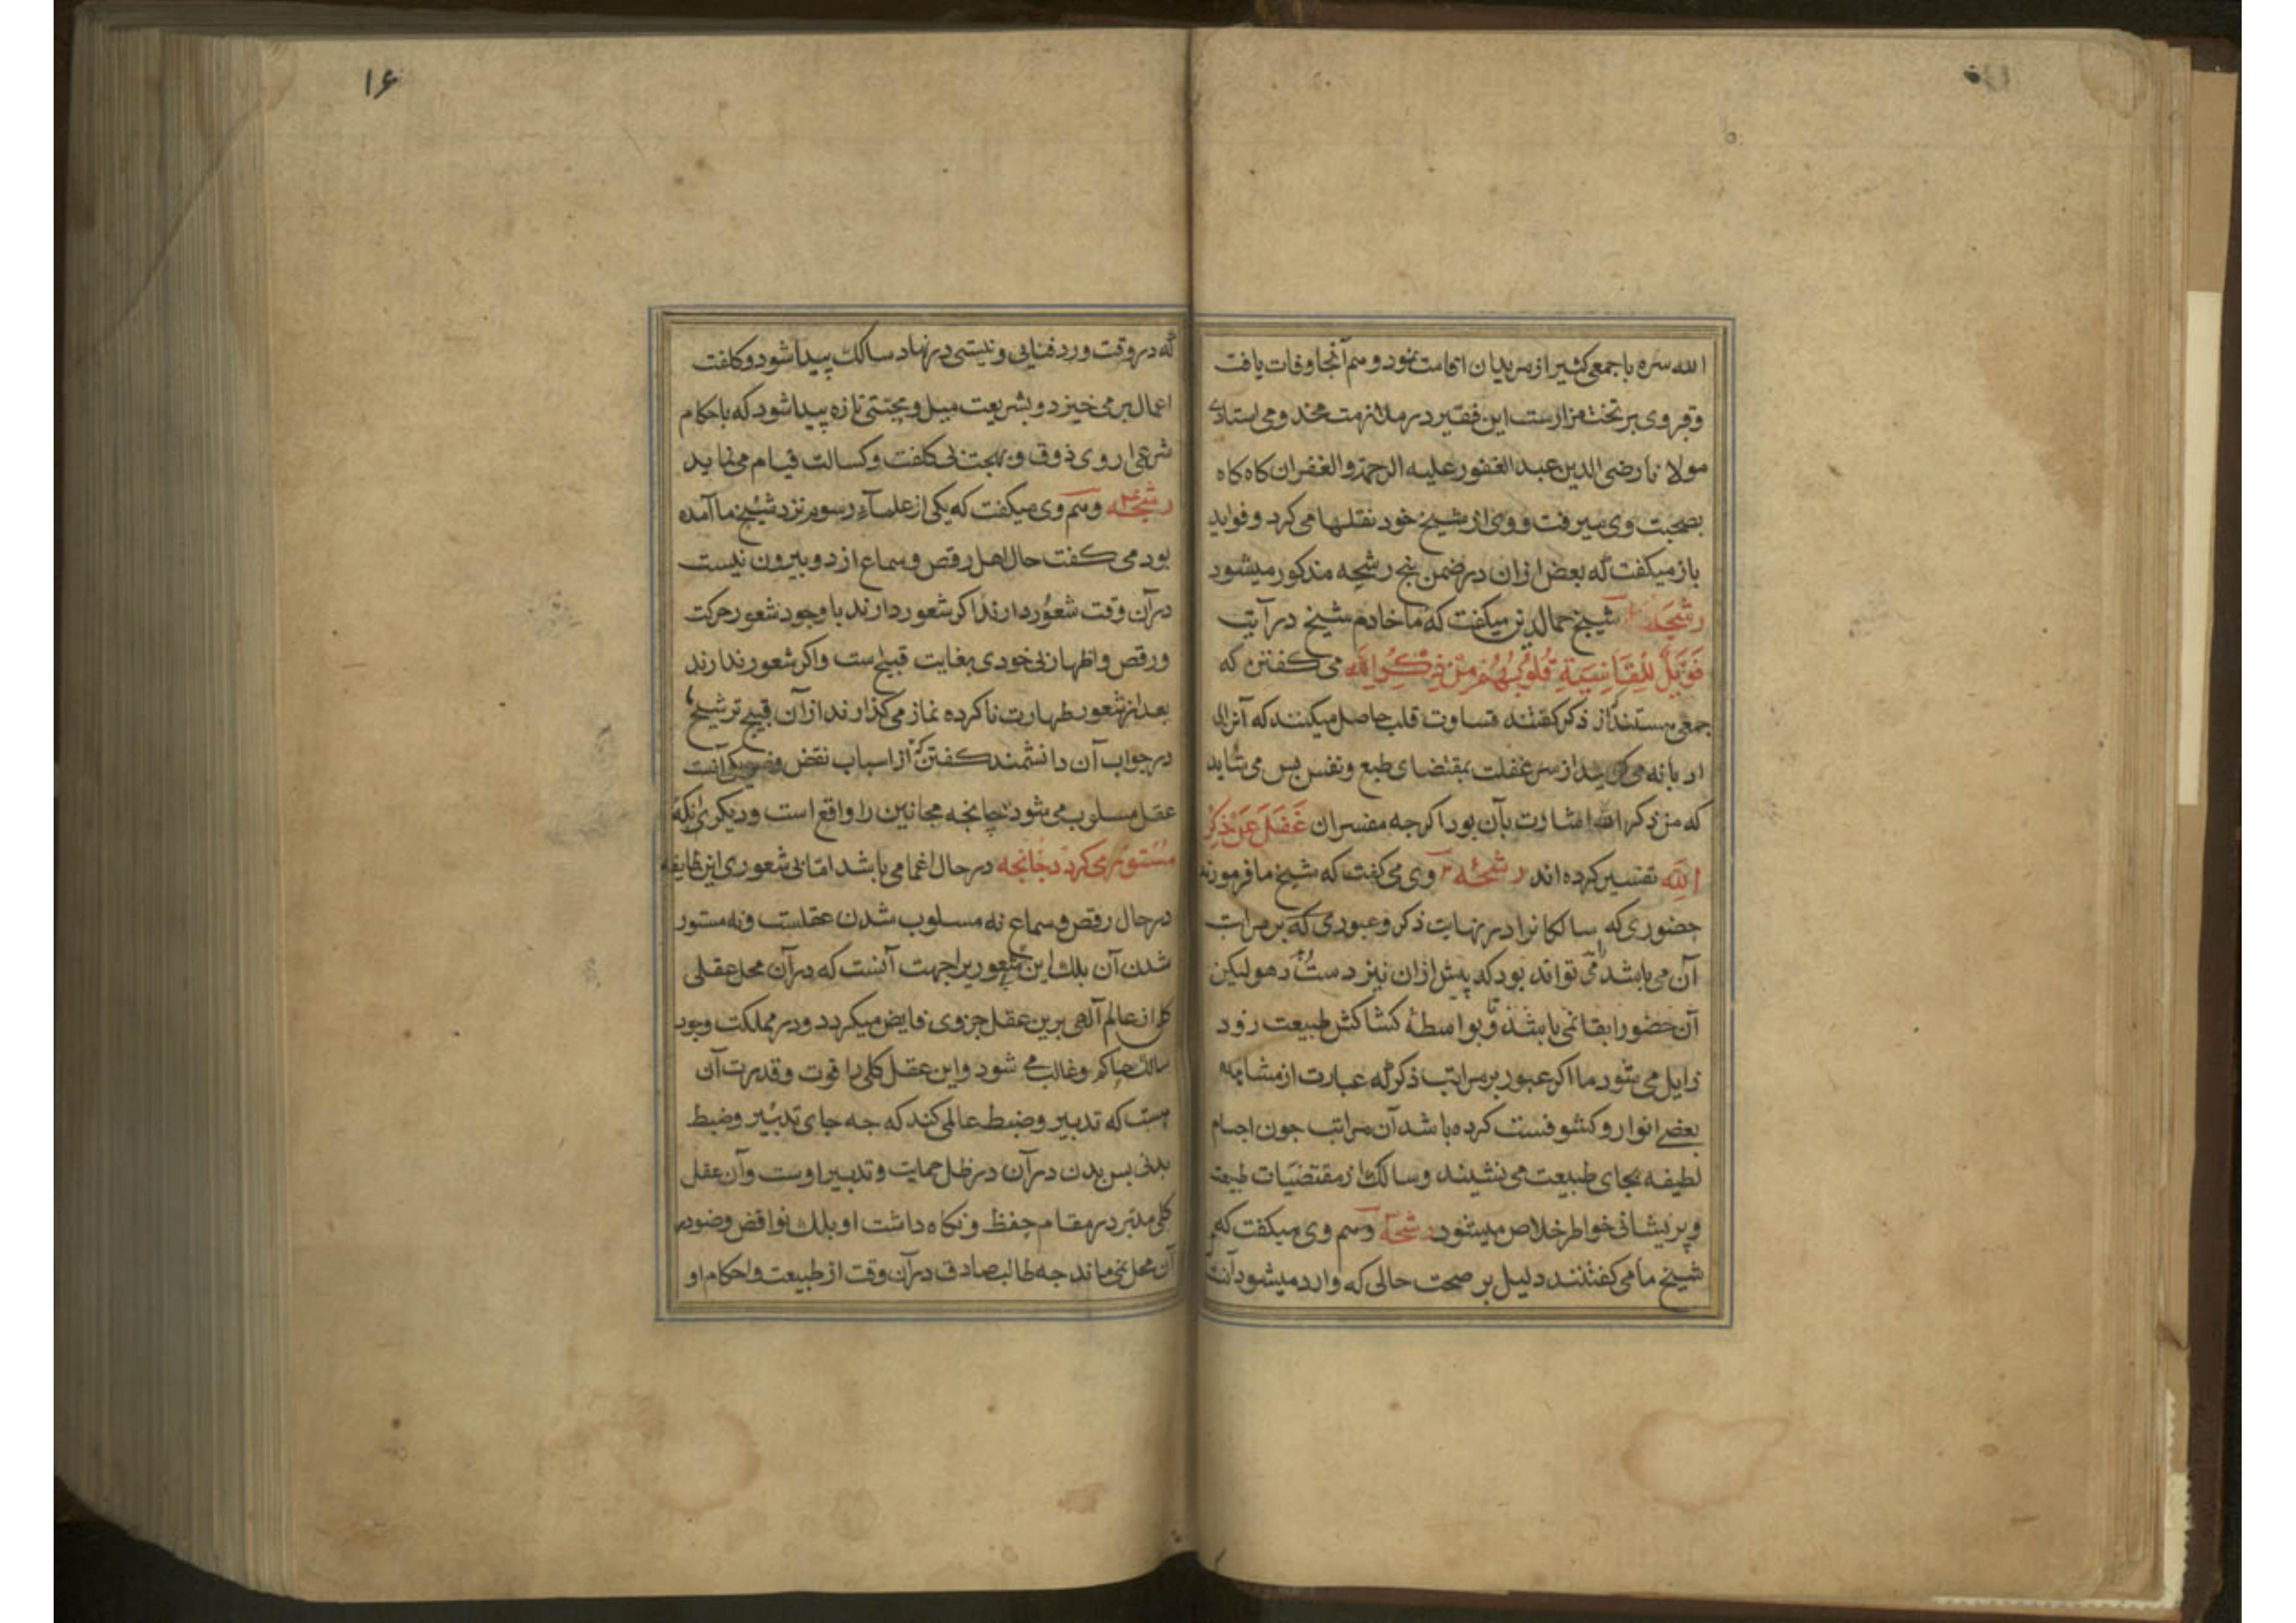 الله سره باجمعی کثیر از مریدان اقامت نمود و هم آنجا وفات یافت
وقبر وی بر تخت مزارست این فقیر در ملازمت مخدومی استادی
مولانا رضی الدین عبد الغفور علیه الرحمة والغفران کاه کاه
بصحبت وی میرفت و وی از شیخ خود نقلها می کرد و فواید
باز میکفت که بعض ازان در ضمن پنج رشحه مذکور میشود
رشحه شیخ جمال الدین میکفت که ما خادم شیخ در آیت
فَوَیْلٌ لِلْقَاسِیَةِ قُلُوبُهُمْ مِنْ ذِکْرِ الله می کفتند که
جمعی هستند از ذکر کفتند قساوت قلب حاصل میکنند که آنرا
از سر غفلت بمقتضای طبع و نفس بس می شاید
که من ذکر الله اشارت بآن بود اکرجه مفسران غَفَلَ عَنْ ذِکْرِ
الله تفسیر کرده اند رشحه ۲ وی می کفت که شیخ ما فرمودند
حضوری که سالکانرا در نهایت ذکر و عبوری که بر مراتب
آن می باشد می تواند بود که پیش ازان نیز دست دهد لیکن
آن حضور ابقا نمی باشد و بواسطه کشاکش طبیعت زود
زایل می شود ما اکر عبور بر مراتب ذکر که عبارت از مشاهده
بعضی انوار و کشوفست کرده باشد آن مراتب جون اجسام
لطیفه بجای طبیعت می نشیند و سالک از مقتضیات طبیعت
و پریشانی خواطر خلاص میشود رشحه وهم وی میکفت که
شیخ ما می کفتند دلیل بر صحت حالی که وارد میشود آنست
۱۶
که در وقت ورد فنایی و نیستی در نهاد سالک پیدا شود و کلفت
اعمال بر می خیزد و بشریعت میل و محبتی تازه پیدا شود که باحکام
شرعی از روی ذوق و بهجت بی کلفت و کسالت قیام می نماید
رشحه ۴ وهم وی میکفت که یکی از علماء رسوم نزد شیخ ما آمده
بود می کفت حال اهل رقص و سماع از دو بیرون نیست
در آن وقت شعور دارند اکر شعور دارند با وجود شعور حرکت
و رقص و اظهار بی خودی بغایت قبیح است واکر شعور ندارند
بعد از شعور طهارت ناکرده نماز می کذارند از آن قبیح تر شیخ ما
در جواب آن دانشمند کفتند که از اسباب نقض وضو یکی آنست
عقل مسلوب می شود چنانجه مجانین را واقع است و دیکری آنکه
مستور می کردد جنانجه در حال اغما می باشد اما بی شعوری این طایفه
در حال رقص و سماع نه مسلوب شدن عقلست ونه مستور
شدن آن بلک این شعور براجهت آنست که در آن محل عقلی
کلی از عالم آلهی برین عقل جزوی فایض میکردد و در مملکت وجود
سالک حاکم و غالب می شود و این عقل کلی را قوت و قدرت آن
هست که تدبیر و ضبط عالمی کند که جه جای تدبیر و ضبط
بدنی بس بدن در آن در ظل حمایت و تدبیر اوست و آن عقل
کلی مدبر در مقام حفظ و نکاه داشت او بلک نواقض وضو در
آن محل نمی ماند جه طالب صادق در آن وقت از طبیعت و احکام او